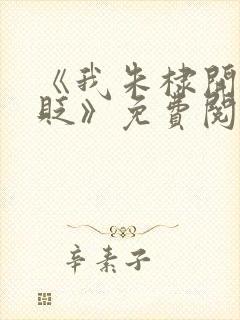 《我朱棣開
貶》免費閱
辛素子